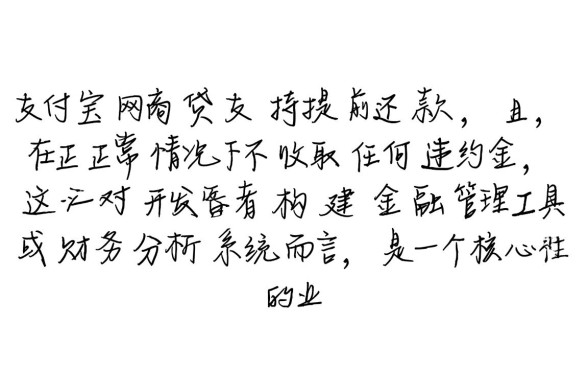 支付宝网商贷支持提前还款，且，
在正正常情况下不收取任何违约金，
这对开发者构建金融管理工具
或财务分析系统而言，是一个核心性
的业